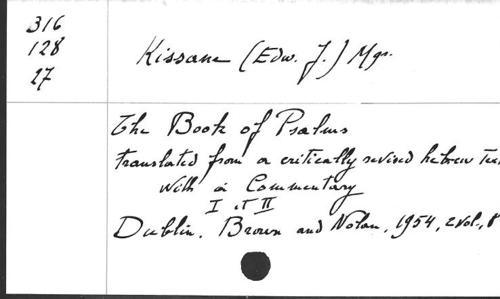 316
128
27
Kissane (Edw. J.) Mgr.
The Book of Psalms
translated from a critically revised hebrew Tex
with a Commentary
I et II
Dublin. Brown and Nolan, 1954, 2 vol., 8